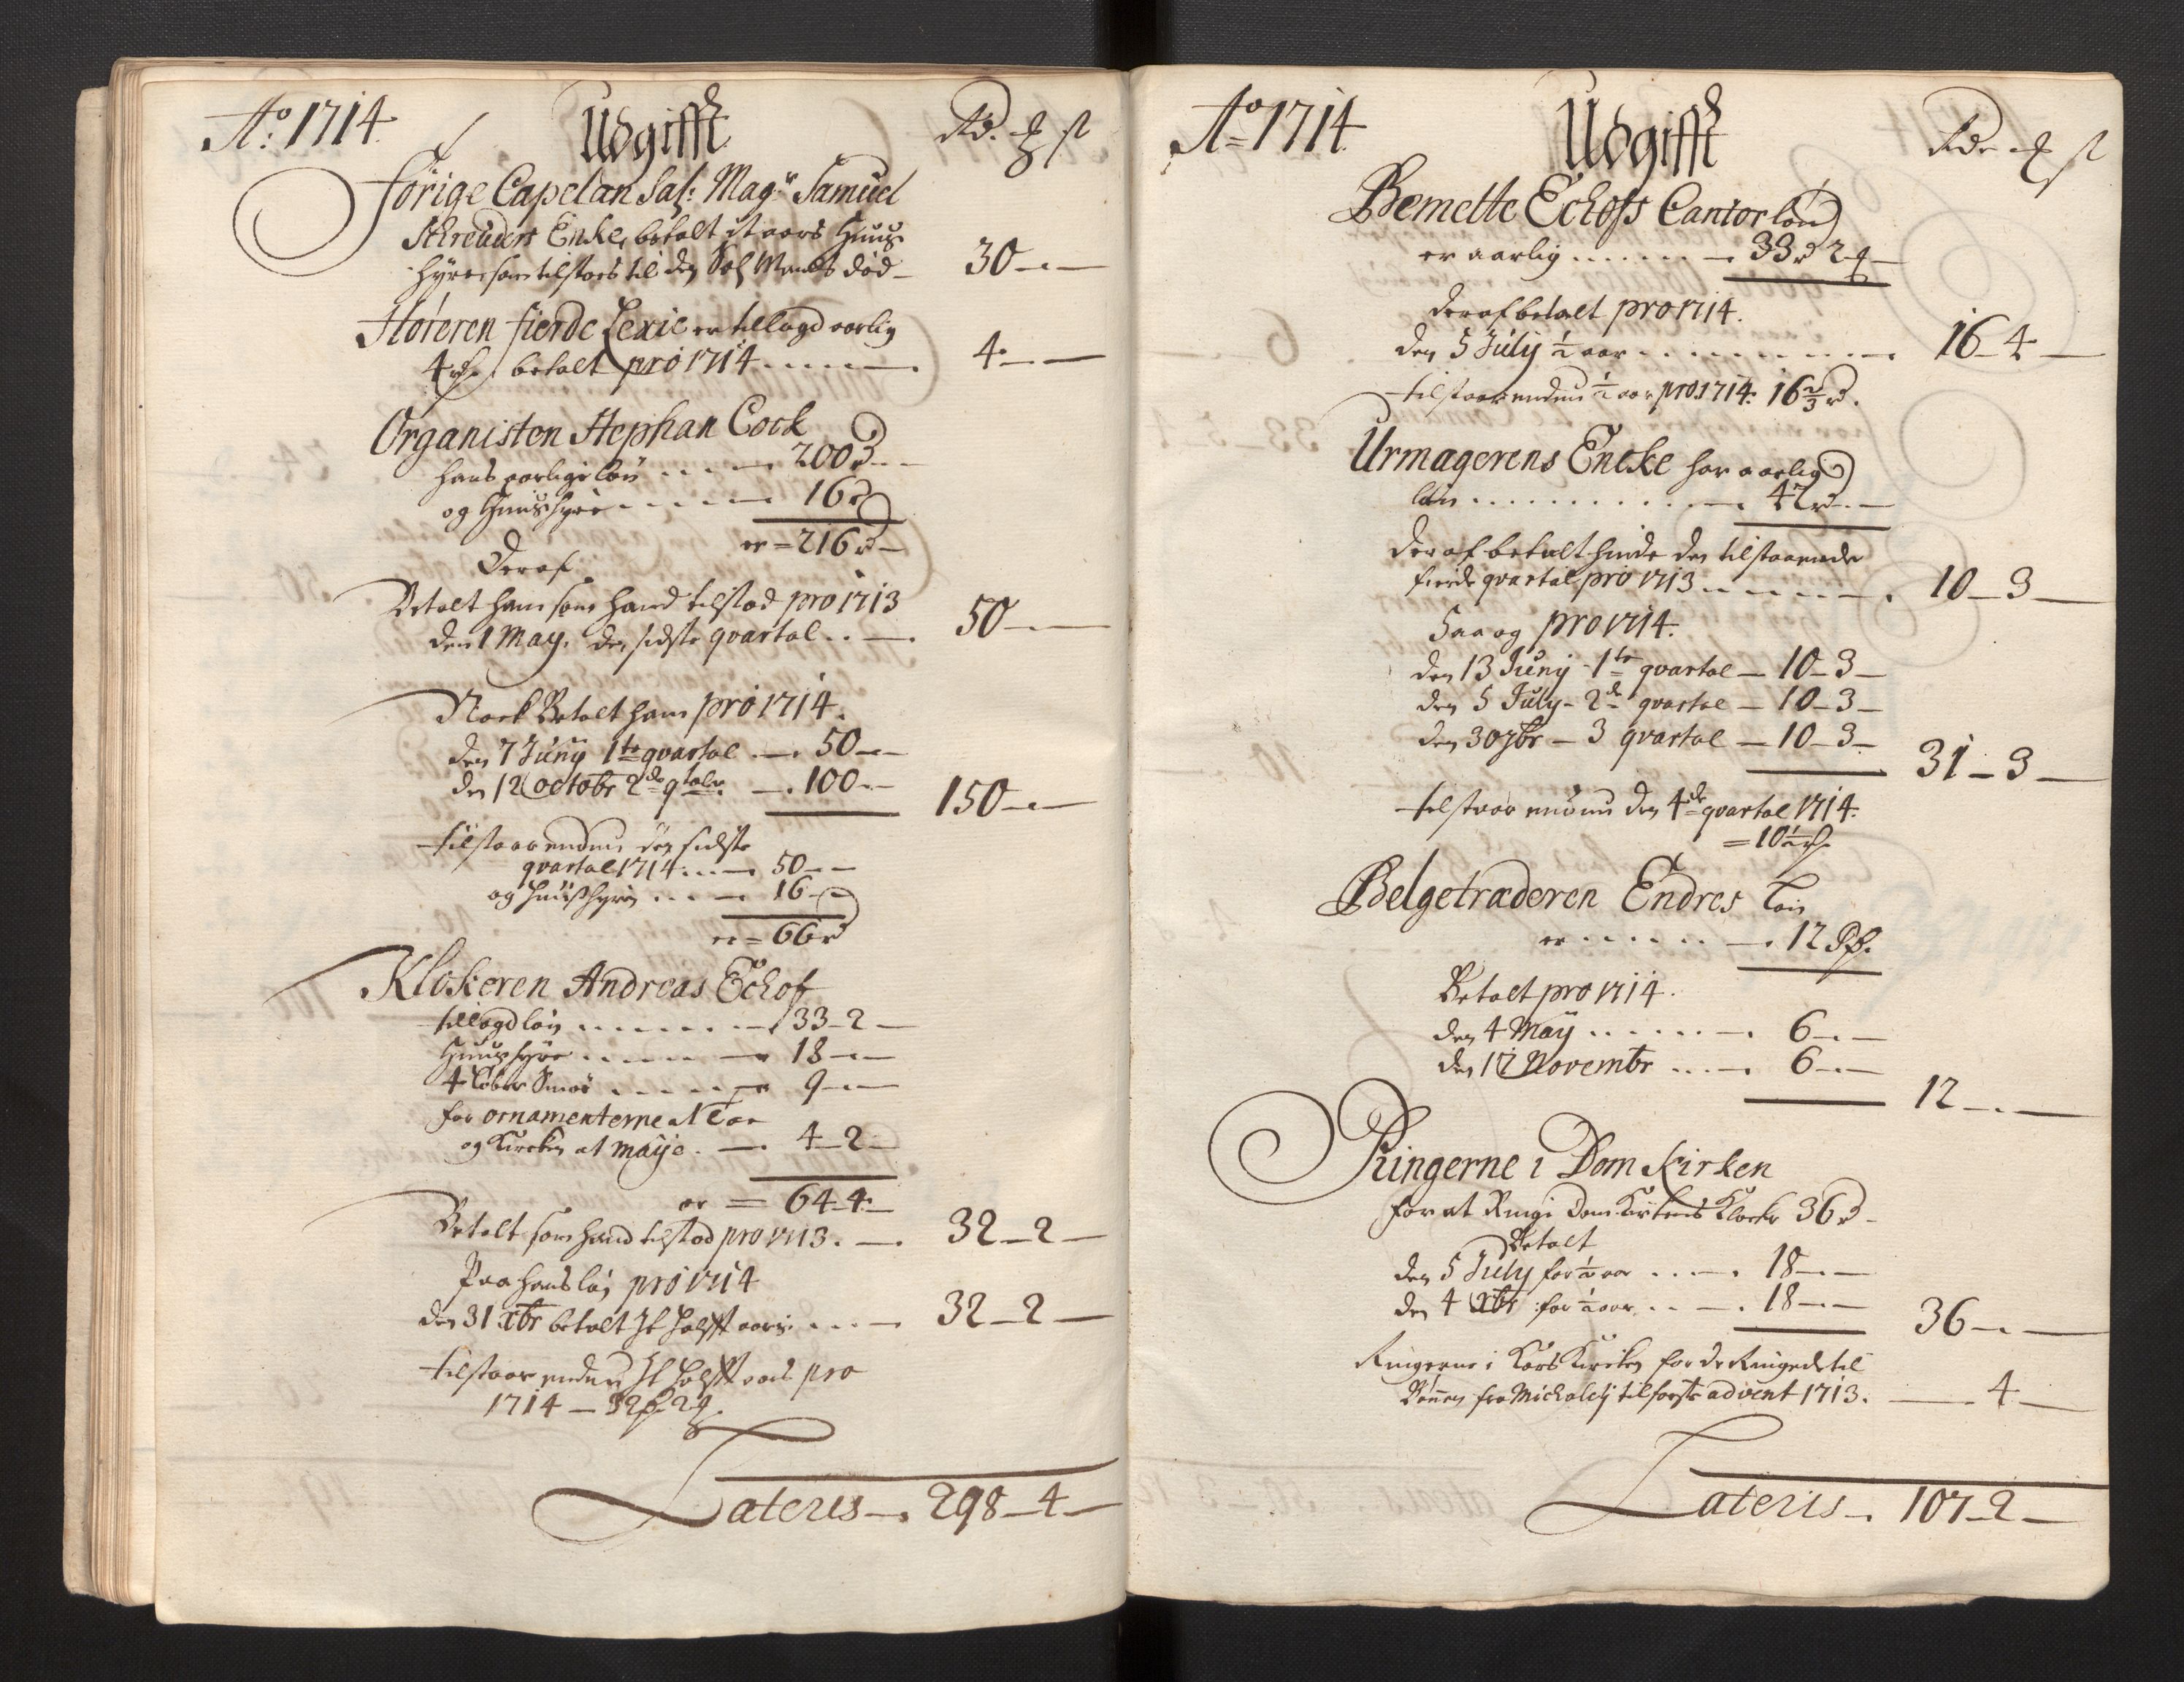 Ao: 1714
Udgifft
Rd. ꝶ ß
förige Capelan Sal: Magr Samuel
Schreuders Enke, betalt it aars Huus
hyre som tilstoed til den Sal Mands död — 30 — —
Høreren fierde Lexie er tillagd aarlig
4 rdr. betalt pro 1714 — 4 — —
Organisten Stephan Cock
hans aarlige løn — 200 rd
og Huushyre — 16 rd
er = 216 rd
Deraf
Betalt ham som hand tilstod pro 1713
den 1 May. den sidste qvartal — 50 — —
Nock Betalt ham pro 1714.
den 7 Juny 1te qvartal — 50 —
den 12 octobr 2de qtaler — 100 —
150 — —
tilstaar endnu den sidste
qvartal 1714 — 50 — —
og huushyre — 16 —
er = 66 rd
Klokeren Andreas Echof
tillagd løn — 33 — 2 —
Huushyre — 18 — —
4 løber Smør — 9 — —
for ornamenterne
og Kircken at maye — 4 — 2
er = 64 — 4 —
Betalt som hand tilstod pro 1713. — 32 — 2 —
Paa hans løn pro 1714
den 31 xbr betalt It halft aars — 32 — 2 —
tilstaar endnu It halft aars pro
1714 — 32 rdr 2 ꝶ
Lateris — 298 — 4 —
Ao = 1714
Udgifft
Rdr ꝶ ß
Bemette Echofs Cantor løn
er aarlig — 33 rd 2 ꝶ —
deraf betalt pro 1714.
den 5 July ½ aar — 16 — 4 —
tilstaar endnu ½ aar pro 1714: 16⅔ rd.
Urmagerens Encke har aarlig
løn — 42 rd — —
deraf betalt hende den tilstaaende
fierde qvartal pro 1713 — 10 — 3 —
Saa og pro 1714.
den 13 Juny - 1te qvartal — 10 — 3 —
den 5 July - 2de qvartal — 10 — 3 —
den 30 7br — 3 qvartal — 10 — 3 —
31 — 3 —
tilstaar endnu den 4de qvartal 1714.
= 10½ rdr.
Belgetræderen Endres løn
er — 12 Rdr.
Betalt pro 1714.
den 4 May — 6 — —
den 17 Novembr — 6 — —
12 — —
Ringerne i Dom Kirken
for at Ringe Dom Kirkens Klocker 36 rd —
Betalt
den 5 July for ½ aar — 18 — —
den 4 xbr for ½ aar — 18 — —
36 — —
Ringerne i Kors Kircken for de Ringede til
Bönnen fra Michaely til første advent 1713. — 4 —
Lateris — 107 — 2 —